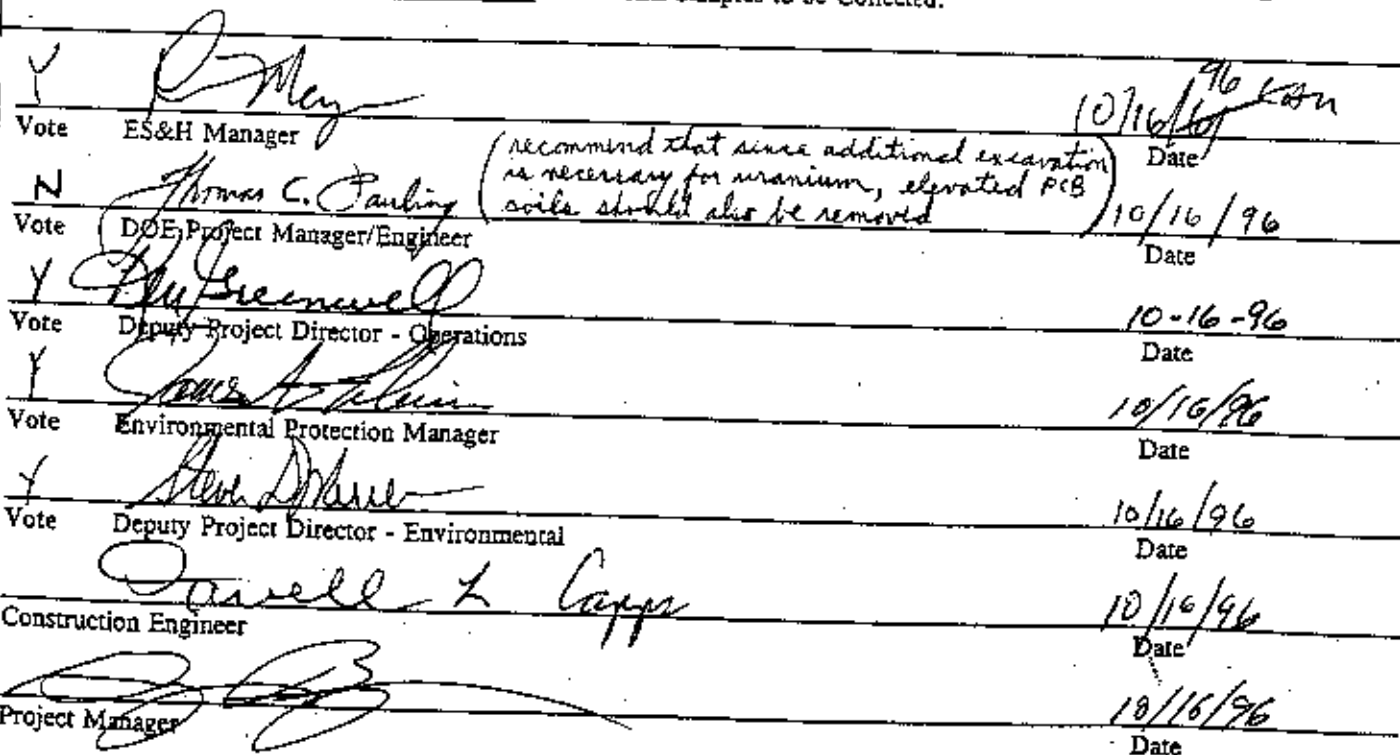 Samples to be Collected.
Y
10/16/96
Vote ES&H Manager Date
(recommend that since additional excavation
is necessary for uranium, elevated PCB
soils should also be removed)
N Thomas C. Pauling 10/16/96
Vote DOE Project Manager/Engineer Date
Y Greenwell 10-16-96
Vote Deputy Project Director - Operations Date
Y 10/16/96
Vote Environmental Protection Manager Date
Y Steve 10/16/96
Vote Deputy Project Director - Environmental Date
L Capps 10/16/96
Construction Engineer Date
10/16/96
Project Manager Date